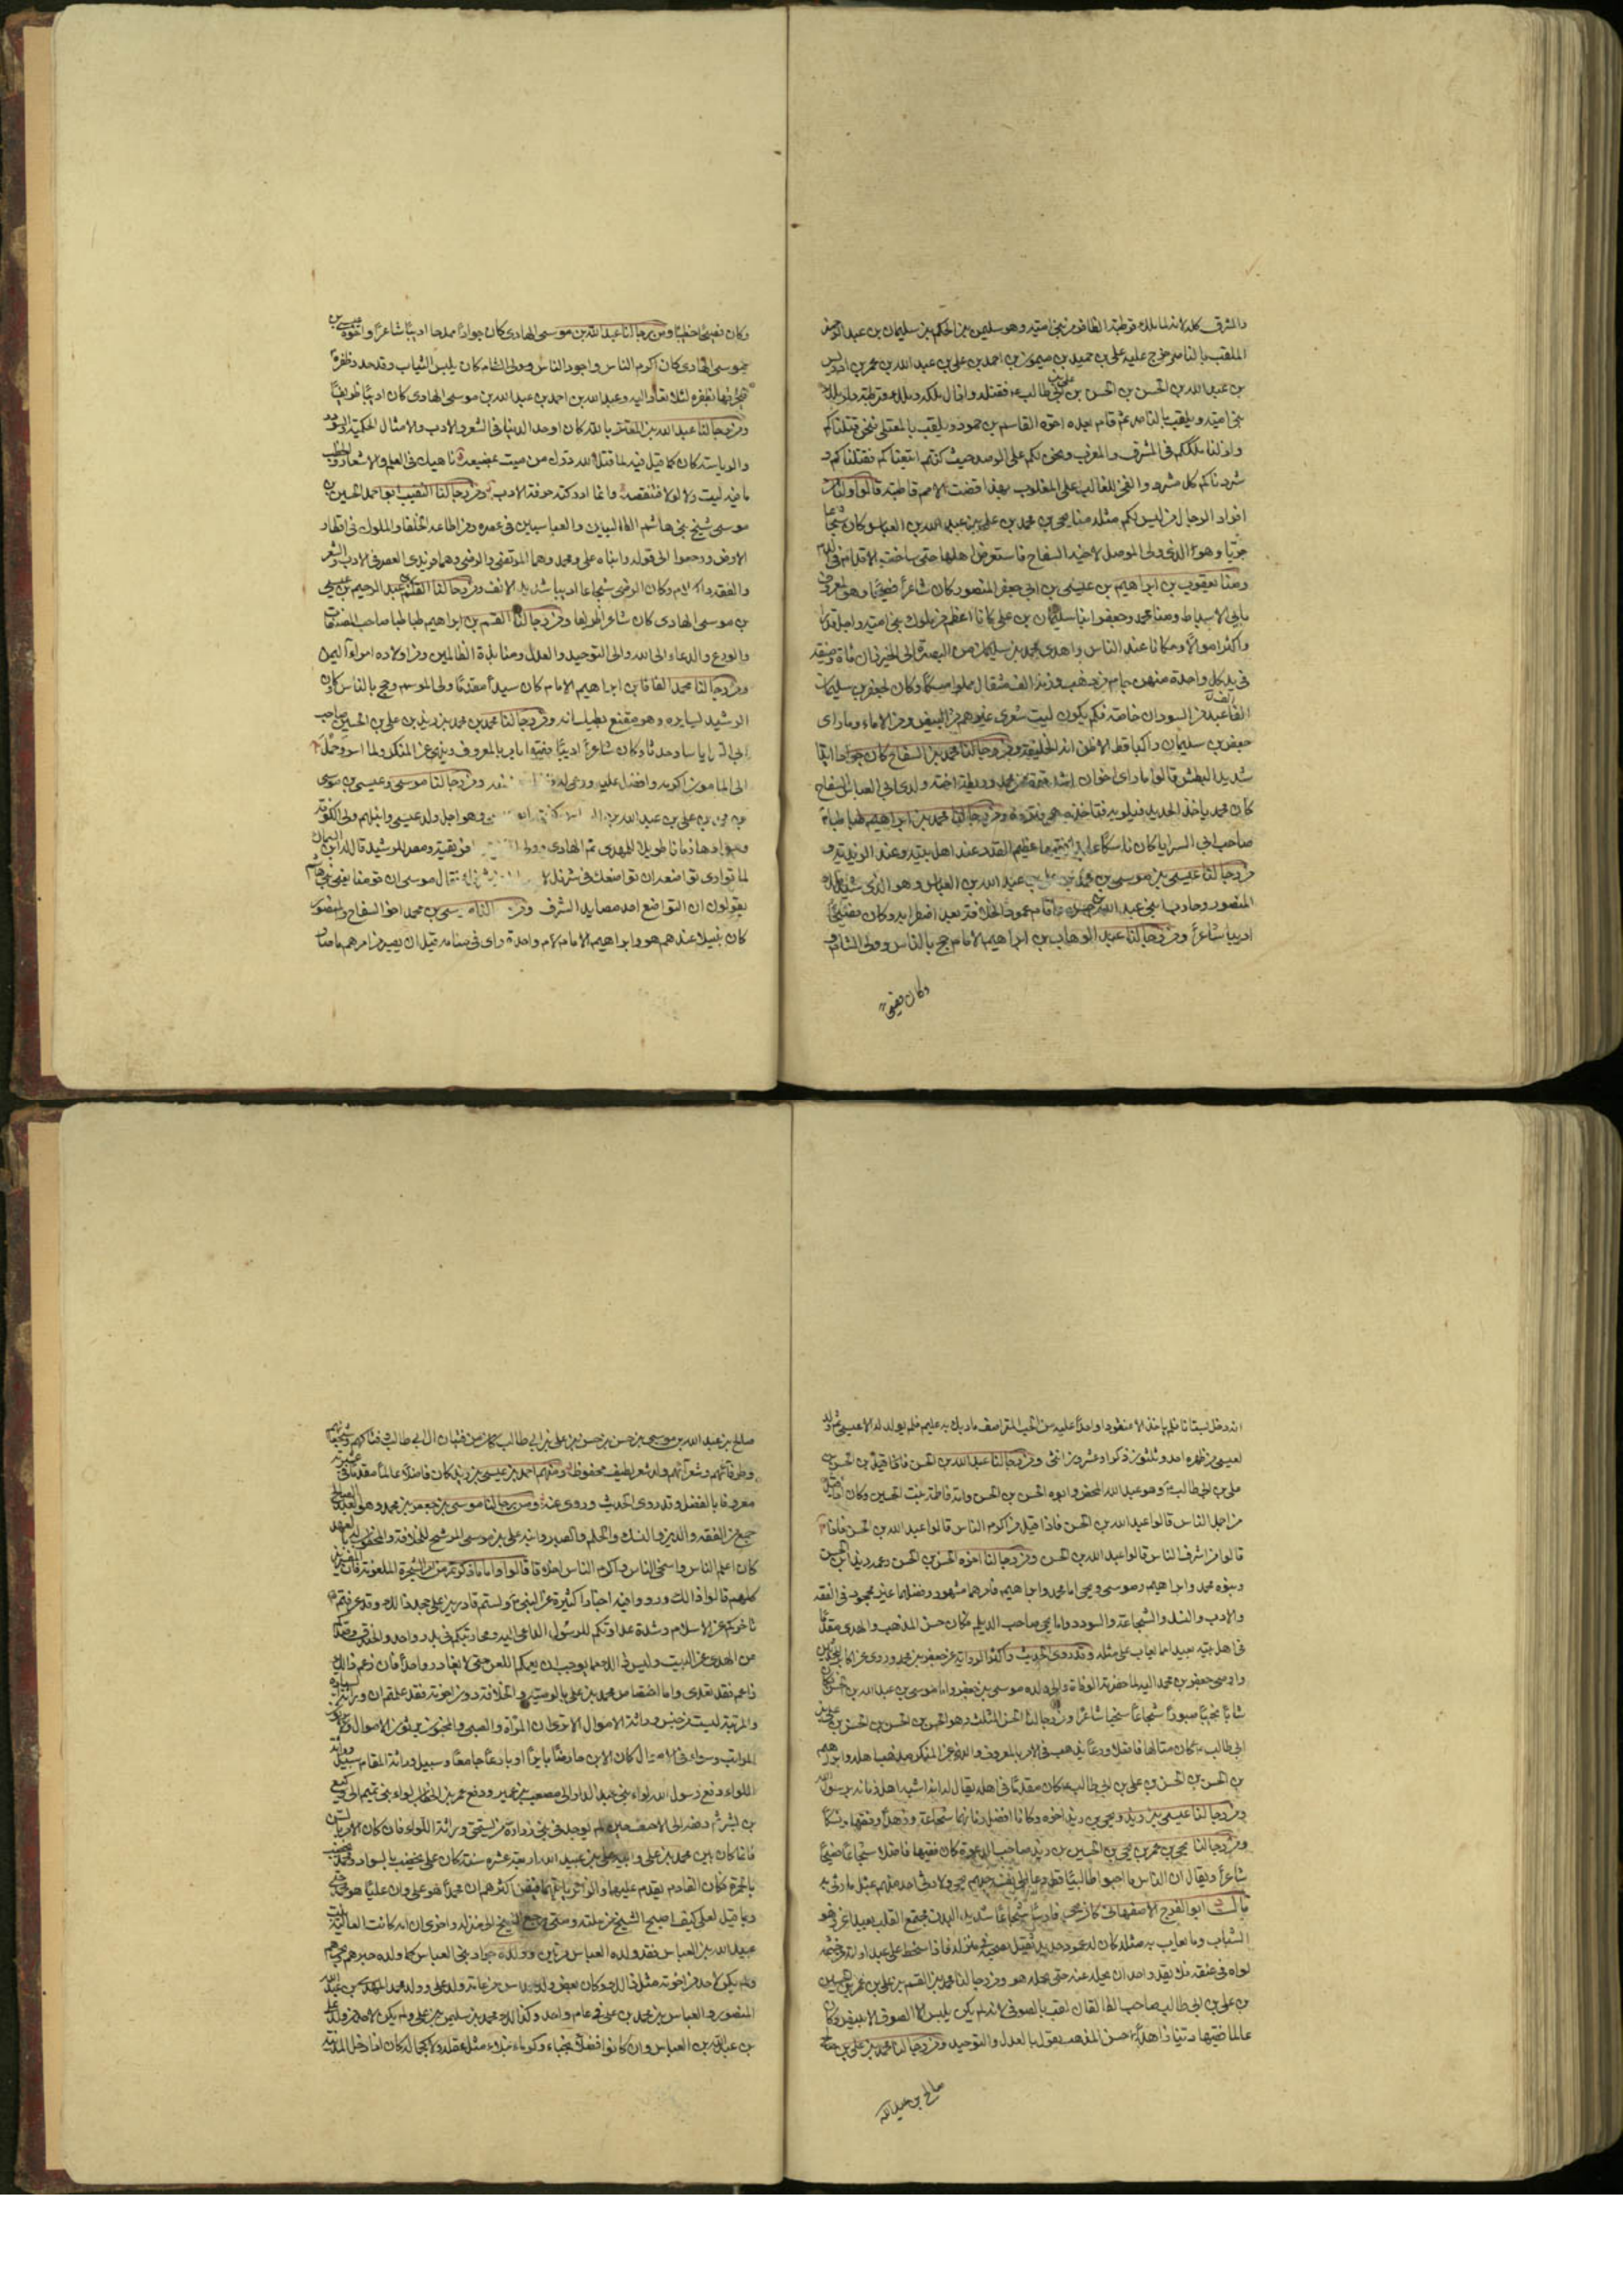 والمشرق كله لانه لما ملك قرطبة الظافر من بني امية وهو سليمن بن الحكم بن سليمان بن عبد الرحمن
الملقب بالناصر خرج عليه علي بن حميد بن ميمون بن احمد بن علي بن عبد الله بن عمر بن ادريس
بن عبد الله بن الحسن بن الحسن بن علي بن ابي طالب فقتله وازال ملكه وملك قرطبة دار ملك
بني امية ويلقب بالناصر ثم قام بعده اخوه القاسم بن حمود ويلقب بالمعتلي فنحن قتلناكم
وازلنا ملككم في المشرق والمغرب ونحن لكم على الرصد حيث كنتم اتبعناكم فقتلناكم و
شردناكم كل مشرد والفخر للغالب على المغلوب بهذا قضت الامم قاطبة قالوا ولنا من
افراد الرجال من ليس لكم مثله منا يحيى بن محمد بن علي بن عبد الله بن العباس كان شجاعا
جريا وهو الذي ولى الموصل لاخيه السفاح فاستعرض اهلها حتى ساخت الاقدام في الدم
ومنا يعقوب بن ابراهيم بن عيسى بن ابي جعفر المنصور كان شاعرا فصيحا وهو المعروف
بابي الاسباط ومنا محمد وجعفر ابنا سليمان بن علي كانا اعظم من ملوك بني امية واجل قدرا
واكثر اموالا ومكانا عند الناس واهدى محمد بن سليمان من البصرة الى الخيزران مائة وصيفة
في يد كل واحدة منهن جام من ذهب وزنه الف مثقال مملوا مسكا وكان لجعفر بن سليمان
الفا عبد من السودان خاصة فكم يكون ليت شعري غيرهم من البيض ومن الاماء وما راى
جعفر بن سليمان راكبا قط الا ظن انه الخليفة ومن رجالنا محمد بن السفاح كان جوادا ايدا
شديد البطش قالوا ما راى اخوان اشد قوة من محمد وريطة اخته ولدي ابي العباس السفاح
كان محمد ياخذ الحديد فيلويه فتاخذه هي فترده ومن رجالنا محمد بن ابراهيم طباطبا
صاحب ابي السرايا كان ناسكا عابدا فقيها عظيم القدر عند اهل بيته وعند الزيدية و
من رجالنا عيسى بن موسى بن محمد بن علي بن عبد الله بن العباس وهو الذي شد ملك
المنصور وحارب ابني عبد الله بن حسن واقام عمود الخلافة بعد اضطرابه وكان فصيحا
اديبا شاعرا ومن رجالنا عبد الوهاب بن ابراهيم الامام حج بالناس وولى الشام
وكان فصيحا
وكان فصيحا خطيبا ومن رجالنا عبد الله بن موسى الهادي كان جوادا ممدحا اديبا شاعرا واخوه عيسى بن
موسى الهادي كان اكرم الناس واجود الناس وولى الشام كان يلبس الثياب وقد حدد ظفره
فيخرقها بظفره لئلا تعاد اليه وعبد الله بن احمد بن عبد الله بن موسى الهادي كان اديبا ظريفا
ومن رجالنا عبد الله بن المعتز بالله كان اوحد الدنيا في الشعر والادب والامثال الحكمية والسودد
والرياسة كان كما قيل فيه لما قتل لله درك من ميت بمضيعة ناهيك في العلم والاشعار والخطب
ما فيه ليت ولا لولا فتنقصه وانما ادركته حرفة الادب ومن رجالنا النقيب ابو احمد الحسين بن
موسى شيخ بني هاشم الطالبيين والعباسيين في عصره ومن اطاعه الخلفاء والملوك في اقطار
الارض ورجعوا الى قوله وابناه علي ومحمد وهما المرتضى والرضي وهما فريدي العصر في الادب والشعر
والفقه والكلام وكان الرضي شجاعا اديبا شديد الانف ومن رجالنا القاسم بن عبد الرحيم بن عيسى
بن موسى الهادي كان شاعرا ظريفا ومن رجالنا القسم بن ابراهيم طباطبا صاحب المصنفات
والورع والدعاء الى الله والى التوحيد والعدل ومنابذة الظالمين ومن اولاده امراء اليمن
ومن رجالنا محمد الفافا بن ابراهيم الامام كان سيدا مقدما ولى الموسم وحج بالناس وكان
الرشيد يسايره وهو مقنع بطيلسانه ومن رجالنا محمد بن محمد بن زيد بن علي بن الحسين صاحب
ابي السرايا ساد حدثا وكان شاعرا اديبا فقيها يامر بالمعروف وينهى عن المنكر ولما اسر وحمل
الى المامون اكرمه وافضل عليه ورعى له ومن رجالنا موسى وعيسى بن موسى
بن محمد بن علي بن عبد الله بن وهو اجل ولد عيسى وانبلهم ولى الكوفة
وسوادها زمانا طويلا للمهدي ثم الهادي وولى افريقية ومصر للرشيد قال له ابن السماك
لما توادى تواضعه ان تواضعك في شرفك فقال موسى ان قومنا يعني بني هاشم
يقولون ان التواضع احد مصايد الشرف ومن رجالنا موسى بن محمد اخو السفاح والمنصور
كان نبيلا عندهم هو وابراهيم الامام لام واحدة راى في منامه قبل ان يصير من امرهم ما صار
انه دخل بستانا فلم ياخذ الا عنقودا واحدا عليه من الحب المتراصف ما ربك به عليم فلم يولد له الا عيسى ثم ولد
لعيسى من ظهره احد وثلثون ذكرا وعشرون انثى ومن رجالنا عبد الله بن الحسن بن الحسن بن
علي بن ابي طالب وهو عبد الله المحض وابوه الحسن بن الحسن وامه فاطمة بنت الحسين وكان اذا قيل
من اجمل الناس قالوا عبد الله بن الحسن فاذا قيل من اكرم الناس قالوا عبد الله بن الحسن فاذا
قالوا من اشرف الناس قالوا عبد الله بن الحسن ومن رجالنا اخوه الحسن بن الحسن وعمه زيد بن الحسن
وبنوه محمد وابراهيم وموسى ويحيى اما محمد وابراهيم فامرهما مشهور وفضلهما غير مجحود في الفقه
والادب والنسك والشجاعة والسودد واما يحيى صاحب الديلم فكان حسن المذهب والهدي مقدما
في اهل بيته بعيدا مما يعاب على مثله وقد روى الحديث واكثر الرواية عن جعفر بن محمد وروى عن اكابر المحدثين
واوصى جعفر بن محمد اليه لما حضرته الوفاة والى ولده موسى بن جعفر واما موسى بن عبد الله بن الحسن فكان
شابا نجيبا صبورا شجاعا سخيا شاعرا ومن رجالنا الحسن المثلث وهو الحسن بن الحسن بن الحسن بن علي بن
ابي طالب كان متالها فاضلا ورعا يذهب في الامر بالمعروف والنهي عن المنكر مذهب اهله وابراهيم
بن الحسن بن الحسن بن علي بن ابي طالب كان مقدما في اهله يقال انه اشبه اهل زمانه برسول الله
ومن رجالنا عيسى بن زيد ويحيى بن زيد اخوه وكانا افضل زمانهما شجاعة وزهدا وفقها ونسكا
ومن رجالنا يحيى بن عمر بن يحيى بن الحسين بن زيد صاحب الدعوة كان فقيها فاضلا شجاعا فصيحا
شاعرا ويقال ان الناس ما احبوا طالبيا قط دعا الى نفسه حبهم يحيى ولا رثي احد منهم بمثل ما رثي به
قال ابو الفرج الاصفهاني كان يحيى فارسا شجاعا شديد البدن مجتمع القلب بعيدا عن زهو
الشباب وما يعاب به مثله كان له عمود حديد ثقيل يصحبه في منزله فاذا سخط على عبد او امة من حشمه
لواه في عنقه فلا يقدر احد ان يحله عنه حتى يحله هو ومن رجالنا محمد بن القسم بن علي بن عمر بن الحسين
بن علي بن ابي طالب صاحب الطالقان لقب بالصوفي لانه لم يكن يلبس الا الصوف الابيض وكان
عالما فقيها دينا زاهدا حسن المذهب يقول بالعدل والتوحيد ومن رجالنا محمد بن علي بن صالح
صالح بن عبد الله
صالح بن عبد الله بن موسى بن حسن بن حسن بن علي بن ابي طالب كان من فتيان ال ابي طالب وفتاكهم وشجعانهم
وظرفائهم وشعرائهم وله شعر لطيف محفوظ ومنهم احمد بن عيسى بن زيد كان فاضلا عالما مقدما في عشيرته
معروفا بالفضل وقد روى الحديث وروي عنه ومن رجالنا موسى بن جعفر بن محمد وهو العبد الصالح
جمع من الفقه والدين والنسك والحلم والصبر وابنه علي بن موسى المرشح للخلافة والمخطوب له بالعهد
كان اعلم الناس واسخى الناس واكرم الناس اخلاقا قالوا واما ما ذكرتم من امر الشجرة الملعونة فان المفسرين
كلهم قالوا ذلك ورووا فيه اخبارا كثيرة عن النبي ولستم قادرين على جحد ذلك وقد عرفتم
تاخركم عن الاسلام وشدة عداوتكم للرسول الداعي اليه ومحاربتكم في بدر واحد والخندق وصدكم
من الهدى عن البيت وليس ذلك مما يوجب ان يعمكم اللعن حتى لا يغادر واحدا فان زعم ذلك
زاعم فقد تعدى واما اختصاص محمد بن علي بالوصية والخلافة دون اخوته فقد علمتم ان وراثة السيادة
والمرتبة ليست من جنس وراثة الاموال الا ترى ان المراة والصبي والمجنون يرثون الاموال ولا يرثون
المراتب وسواء في الاموال كان الابن حارضا بائرا او بارعا جامعا وسبيل وراثة المقام سبيل وراثة
اللواء دفع رسول الله لواء بني عبد الدار الى مصعب بن عمير ودفع عمر بن الخطاب لواء بني تميم الى وكيع
بن بشر ثم دفعه الى الاحنف حين لم يوجد في بني زرارة من يستحق وراثة اللواء فان كان الامر بالسن
فانما كان بين محمد بن علي وابيه علي بن عبد الله اربعة عشرة سنة كان علي يخضب بالسواد ومحمد يخضب
بالحمرة فكان القادم يقدم عليهما والزائر ياتيهما فيظن اكثرهم ان محمدا هو علي وان عليا هو محمد حتى
ربما قيل لعلي كيف اصبح الشيخ من علته ومتى رجع الشيخ الى منزله واخرى ان امه كانت العالية بنت
عبيد الله بن العباس فقد ولده العباس مرتين وولده جواد بني العباس كما ولده حبرهم وبحرهم
ولم يكن لاحد من اخوته مثل ذلك وكان بعض ولد العباس من عامة ولد علي وولد محمد المهدي بن عبد الله
المنصور والعباس بن محمد بن علي في عام واحد وكذلك محمد بن سليمن بن علي ولم يكن لاحد من ولد علي
بن عبد الله بن العباس وان كانوا فضلاء نجباء وكرماء نبلاء مثل عقله ولا كجماله كان اذا دخل المدينة